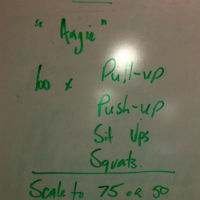 "Angie"
100 x Pull-up
Push-up
Sit Ups
Squats.
Scale to 75 or 50